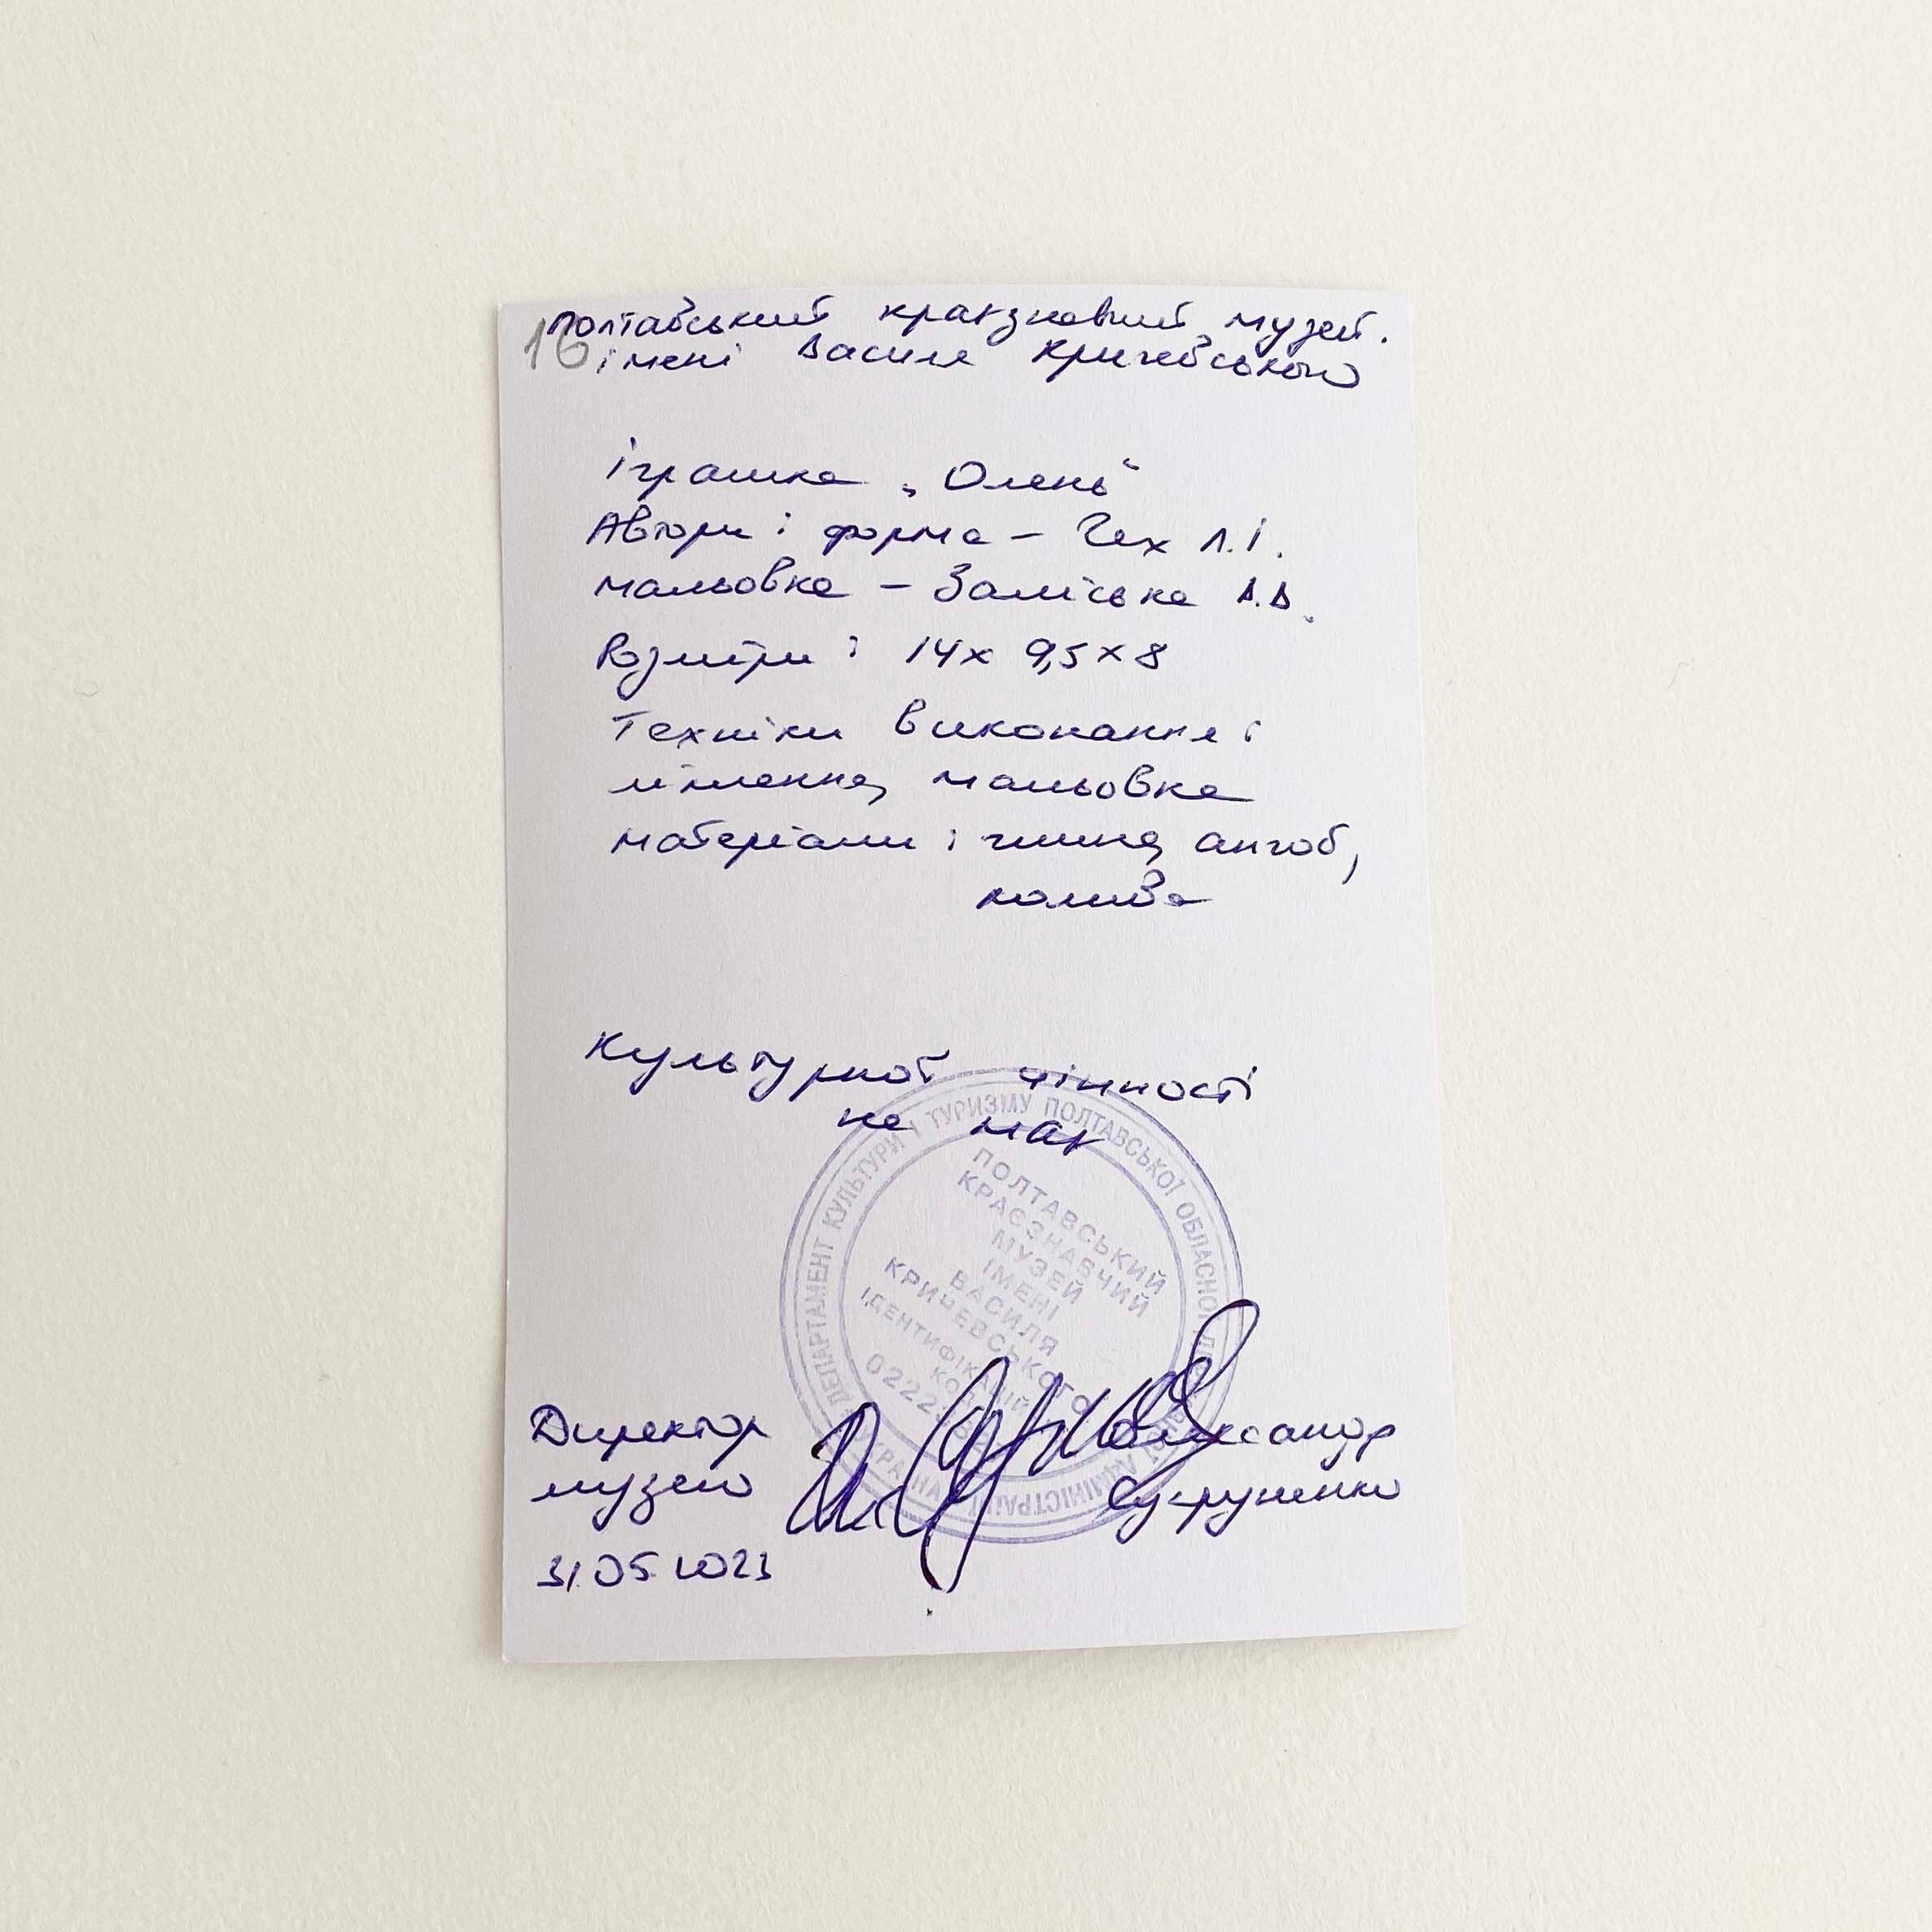 16
Полтавський краєзнавчий музей
імені Василя Кричевського
Іграшка „Олень"
Автори: форма – Чех Л.І.
мальовка – Заліська В.В.
Розміри: 14х 9,5х8
Техніки виконання:
ліплення, мальовка
матеріали: глина, ангоб,
полива
Культурної цінності
не має
ДЕПАРТАМЕНТ КУЛЬТУРИ І ТУРИЗМУ ПОЛТАВСЬКОЇ ОБЛАСНОЇ
АДМІНІСТРАЦІЇ
УКРАЇНА
ПОЛТАВСЬКИЙ
КРАЄЗНАВЧИЙ
МУЗЕЙ
ІМЕНІ
ВАСИЛЯ
КРИЧЕВСЬКОГО
ІДЕНТИФІКАЦІЙНИЙ
КОД
Директор Олександр
музею Супруненко
31.05.2023